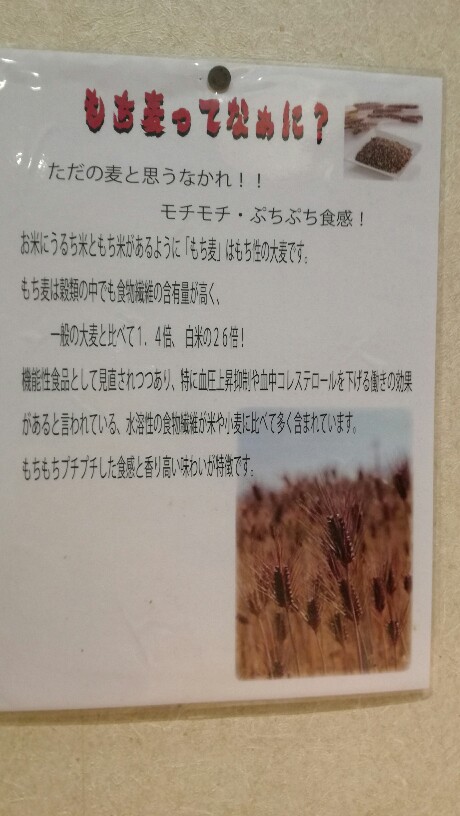 もち麦ってなぁに？
ただの麦と思うなかれ！！
モチモチ・ぷちぷち食感！
お米にうるち米ともち米があるように「もち麦」はもち性の大麦です。
もち麦は穀類の中でも食物繊維の含有量が高く、
一般の大麦と比べて１．４倍、白米の２６倍！
機能性食品として見直されつつあり、特に血圧上昇抑制や血中コレステロールを下げる働きの効果
があると言われている、水溶性の食物繊維が米や小麦に比べて多く含まれています。
もちもちプチプチした食感と香り高い味わいが特徴です。